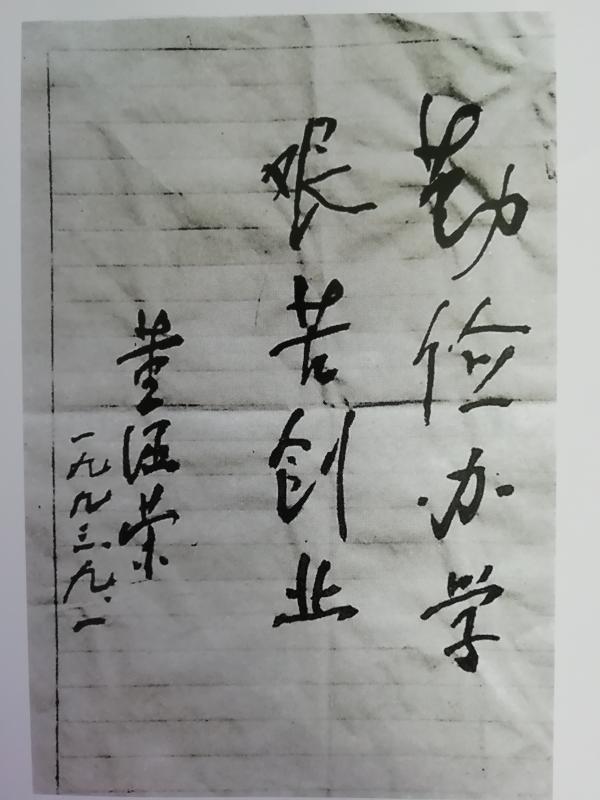 勤俭办学
艰苦创业
董涵荣
一九九三.九.二